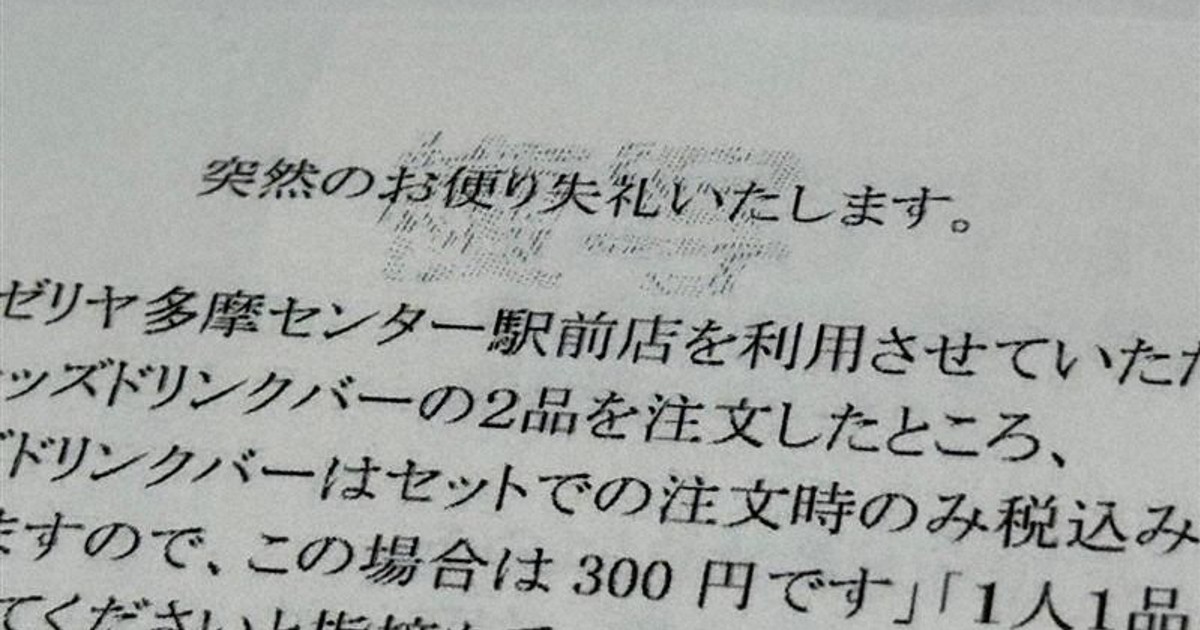 突然のお便り失礼いたします。
ゼリヤ多摩センター駅前店を利用させていただ
ッズドリンクバーの2品を注文したところ、
ドリンクバーはセットでの注文時のみ税込み
ますので、この場合は 300 円です」「1人1品
てくださいと指摘